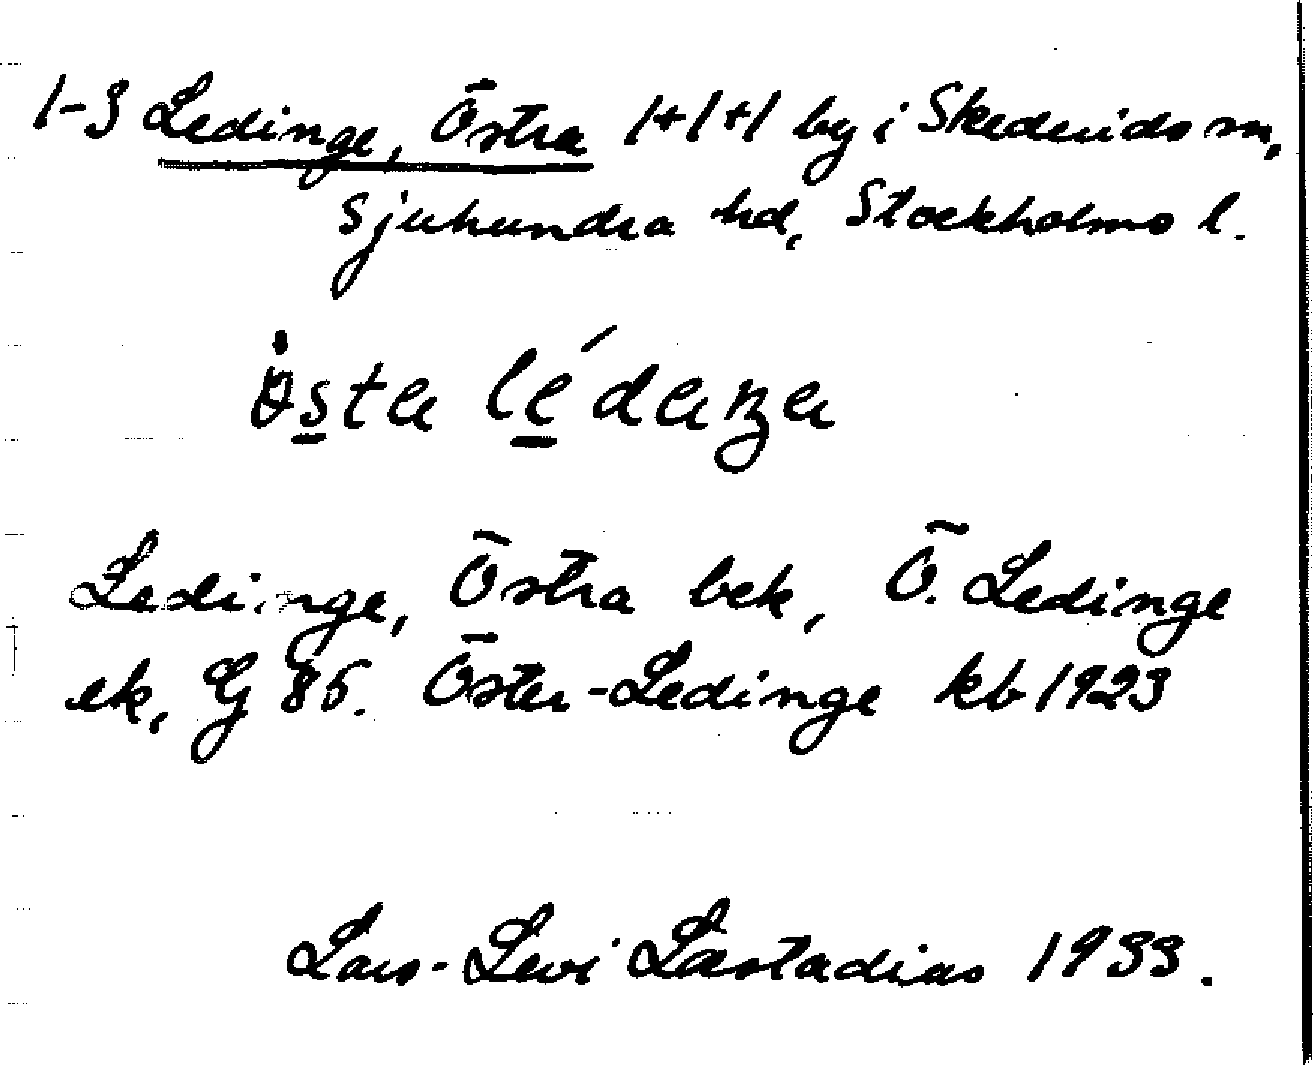 1-3 Ledinge, Östra 1+1+1 by i Skederids sn,
Sjuhundra hd, Stockholms l.
Ledinge, Östra bek, Ö. Ledinge
ek, Gj 85. Öster-Ledinge kb 1923
Lars-Levi Læstadius 1933.